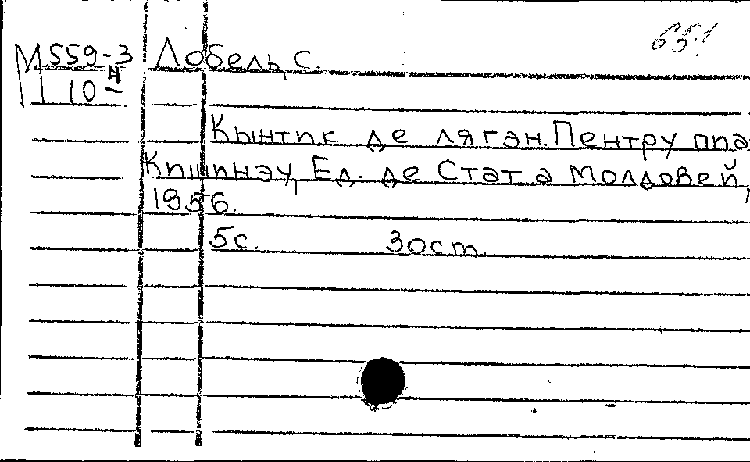 651
М559-3 Лобель, С.
10-4
Кынтик де ляган. Пентру пиа
Кишинэу, Ед. де Стат а Молдовей,
1956.
5с. 30ст.